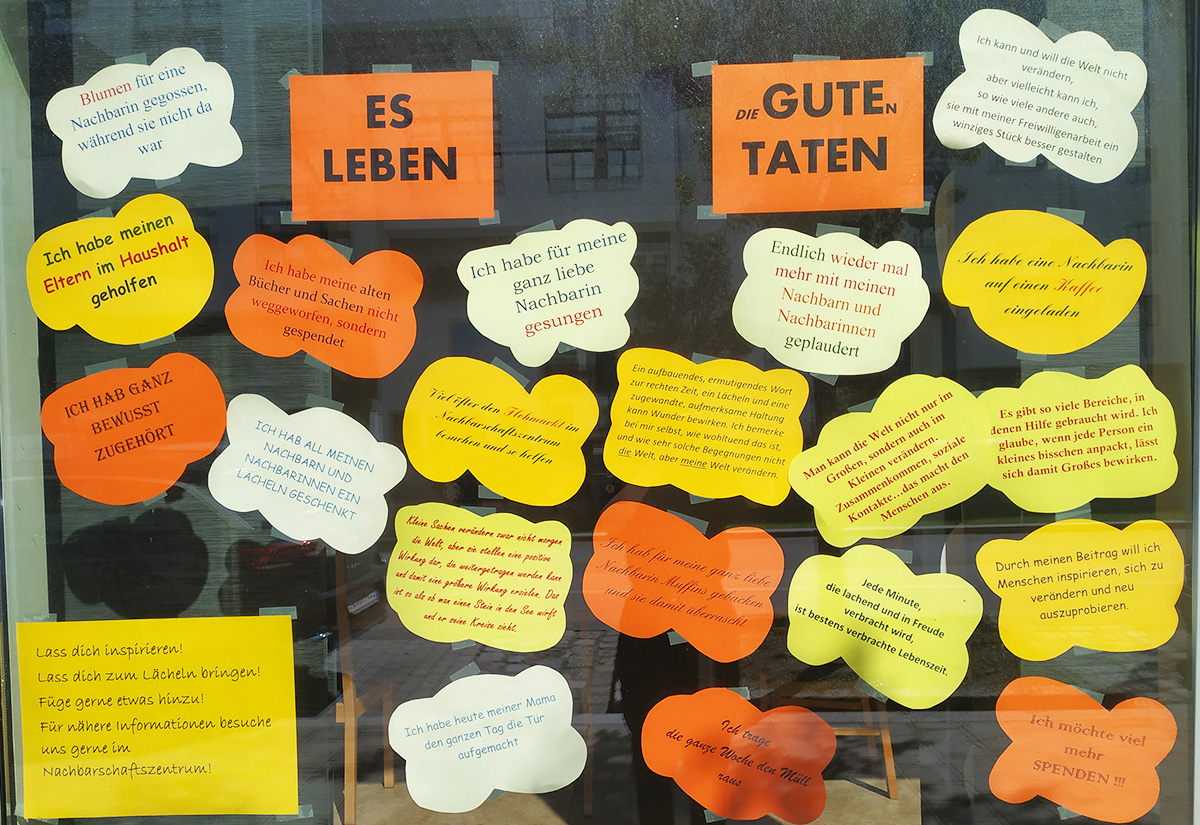 Blumen für eine
Nachbarin gegossen,
während sie nicht da
war
ES
LEBEN
DIE GUTEN
TATEN
Ich kann und will die Welt nicht
verändern,
aber vielleicht kann ich,
so wie viele andere auch,
sie mit meiner Freiwilligenarbeit ein
winziges Stück besser gestalten
Ich habe meinen
Eltern im Haushalt
geholfen
Ich habe meine alten
Bücher und Sachen nicht
weggeworfen, sondern
gespendet
Ich habe für meine
ganz liebe
Nachbarin
gesungen
Endlich wieder mal
mehr mit meinen
Nachbarn und
Nachbarinnen
geplaudert
Ich habe eine Nachbarin
auf einen Kaffee
eingeladen
ICH HAB GANZ
BEWUSST
ZUGEHÖRT
ICH HAB ALL MEINEN
NACHBARN UND
NACHBARINNEN EIN
LÄCHELN GESCHENKT
Viel öfter den Flohmarkt im
Nachbarschaftszentrum
besuchen und so helfen
Ein aufbauendes, ermutigendes Wort
zur rechten Zeit, ein Lächeln und eine
zugewandte, aufmerksame Haltung
kann Wunder bewirken. Ich bemerke
bei mir selbst, wie wohltuend das ist,
und wie sehr solche Begegnungen nicht
die Welt, aber meine Welt verändern.
Man kann die Welt nicht nur im
Großen, sondern auch im
Kleinen verändern.
Zusammenkommen, soziale
Kontakte...das macht den
Menschen aus.
Es gibt so viele Bereiche, in
denen Hilfe gebraucht wird. Ich
glaube, wenn jede Person ein
kleines bisschen anpackt, lässt
sich damit Großes bewirken.
Kleine Sachen verändern zwar nicht morgen
die Welt, aber sie stellen eine positive
Wirkung dar, die weitergetragen werden kann
und damit eine größere Wirkung erzielen. Das
ist es als ob man einen Stein in den See wirft
und er seine Kreise zieht.
Ich hab für meine ganz liebe
Nachbarin Muffins gebacken
und sie damit überrascht
Jede Minute,
die lachend und in Freude
verbracht wird,
ist bestens verbrachte Lebenszeit.
Durch meinen Beitrag will ich
Menschen inspirieren, sich zu
verändern und neu
auszuprobieren.
Lass dich inspirieren!
Lass dich zum Lächeln bringen!
Füge gerne etwas hinzu!
Für nähere Informationen besuche
uns gerne im
Nachbarschaftszentrum!
Ich habe heute meiner Mama
den ganzen Tag die Tür
aufgemacht
Ich trage
die ganze Woche den Müll
raus
Ich möchte viel
mehr
SPENDEN !!!